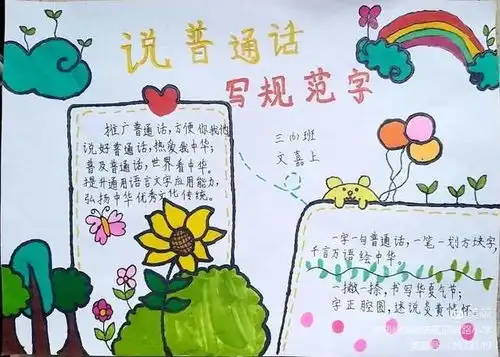 说普通话
写规范字
三(6)班
文嘉上
推广普通话,方便你我他
说好普通话,热爱我中华;
普及普通话,世界看中华。
提升通用语言文字应用能力,
弘扬中华优秀文化传统。
一字一句普通话,一笔一划方块字,
千言万语绘中华。
一撇一捺,书写华夏气节;
字正腔圆,述说炎黄情怀。